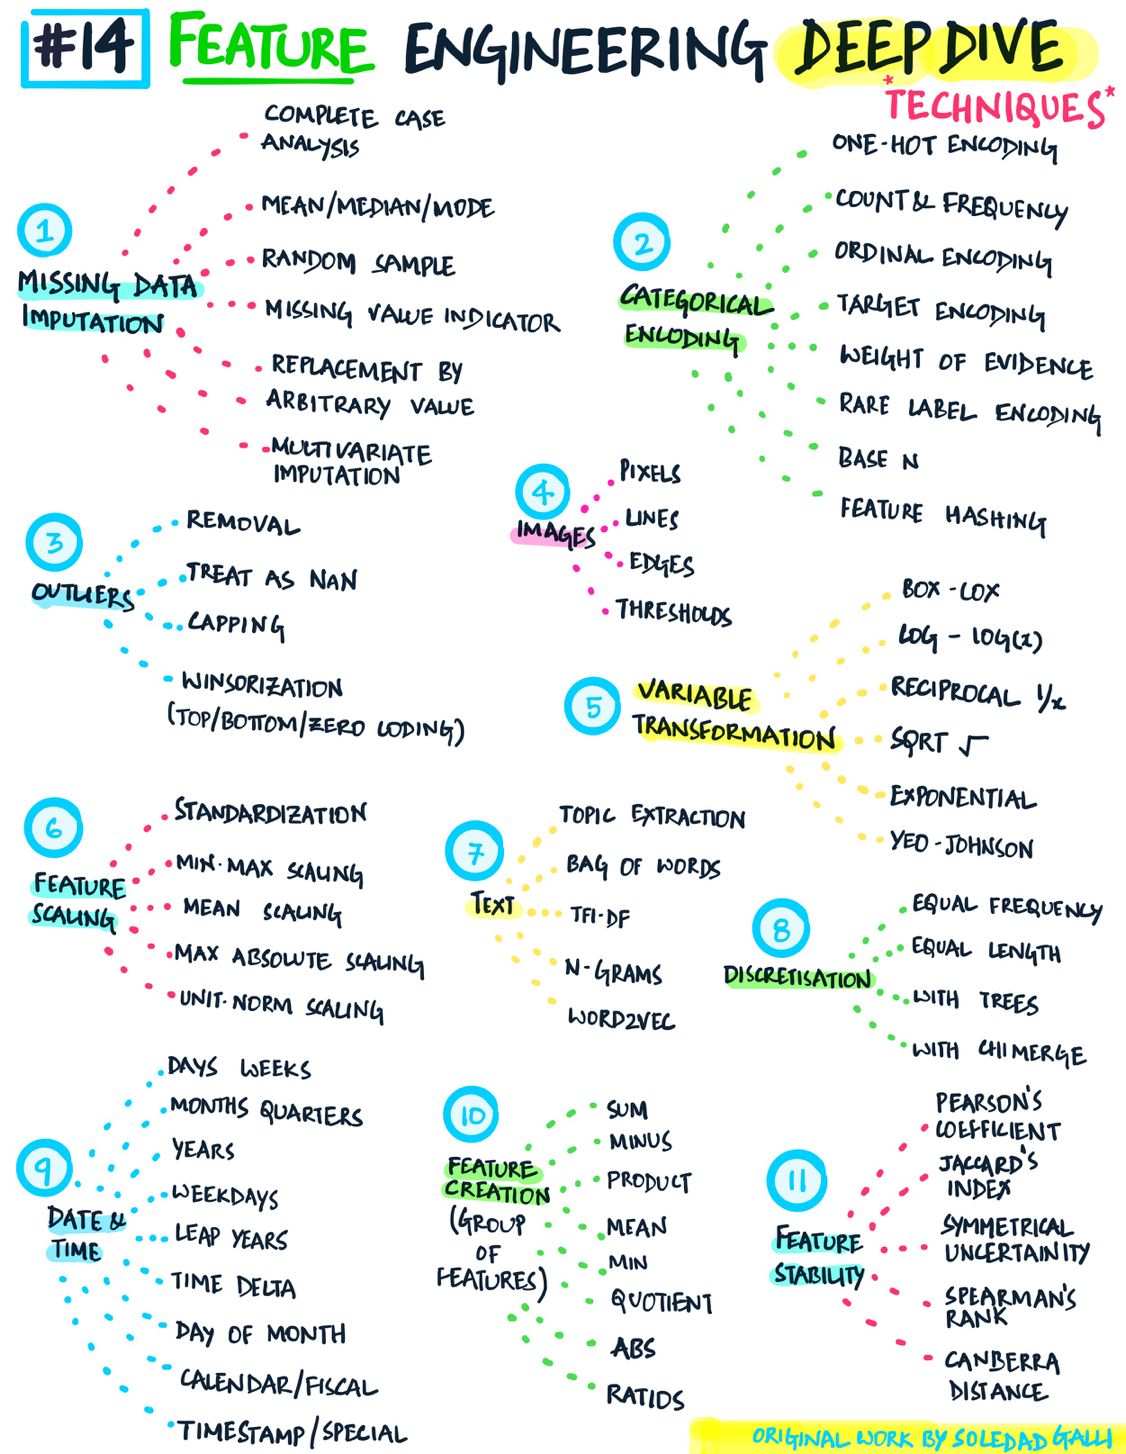 #14 FEATURE ENGINEERING DEEP DIVE
*TECHNIQUES*
1
MISSING DATA
IMPUTATION
COMPLETE CASE
ANALYSIS
MEAN/MEDIAN/MODE
RANDOM SAMPLE
MISSING VALUE INDICATOR
REPLACEMENT BY
ARBITRARY VALUE
MULTIVARIATE
IMPUTATION
2
CATEGORICAL
ENCODING
ONE-HOT ENCODING
COUNT & FREQUENCY
ORDINAL ENCODING
TARGET ENCODING
WEIGHT OF EVIDENCE
RARE LABEL ENCODING
BASE N
FEATURE HASHING
3
OUTLIERS
REMOVAL
TREAT AS NAN
CAPPING
WINSORIZATION
(TOP/BOTTOM/ZERO CODING)
4
IMAGES
PIXELS
LINES
EDGES
THRESHOLDS
5
VARIABLE
TRANSFORMATION
BOX-COX
LOG - LOG(x)
RECIPROCAL 1/x
SQRT √
EXPONENTIAL
YEO-JOHNSON
6
FEATURE
SCALING
STANDARDIZATION
MIN-MAX SCALING
MEAN SCALING
MAX ABSOLUTE SCALING
UNIT-NORM SCALING
7
TEXT
TOPIC EXTRACTION
BAG OF WORDS
TFI-DF
N-GRAMS
WORD2VEC
8
DISCRETISATION
EQUAL FREQUENCY
EQUAL LENGTH
WITH TREES
WITH CHIMERGE
9
DATE &
TIME
DAYS WEEKS
MONTHS QUARTERS
YEARS
WEEKDAYS
LEAP YEARS
TIME DELTA
DAY OF MONTH
CALENDAR/FISCAL
TIMESTAMP/SPECIAL
10
FEATURE
CREATION
(GROUP
OF
FEATURES)
SUM
MINUS
PRODUCT
MEAN
MIN
QUOTIENT
ABS
RATIOS
11
FEATURE
STABILITY
PEARSON'S
COEFFICIENT
JACCARD'S
INDEX
SYMMETRICAL
UNCERTAINITY
SPEARMAN'S
RANK
CANBERRA
DISTANCE
ORIGINAL WORK BY SOLEDAD GALLI